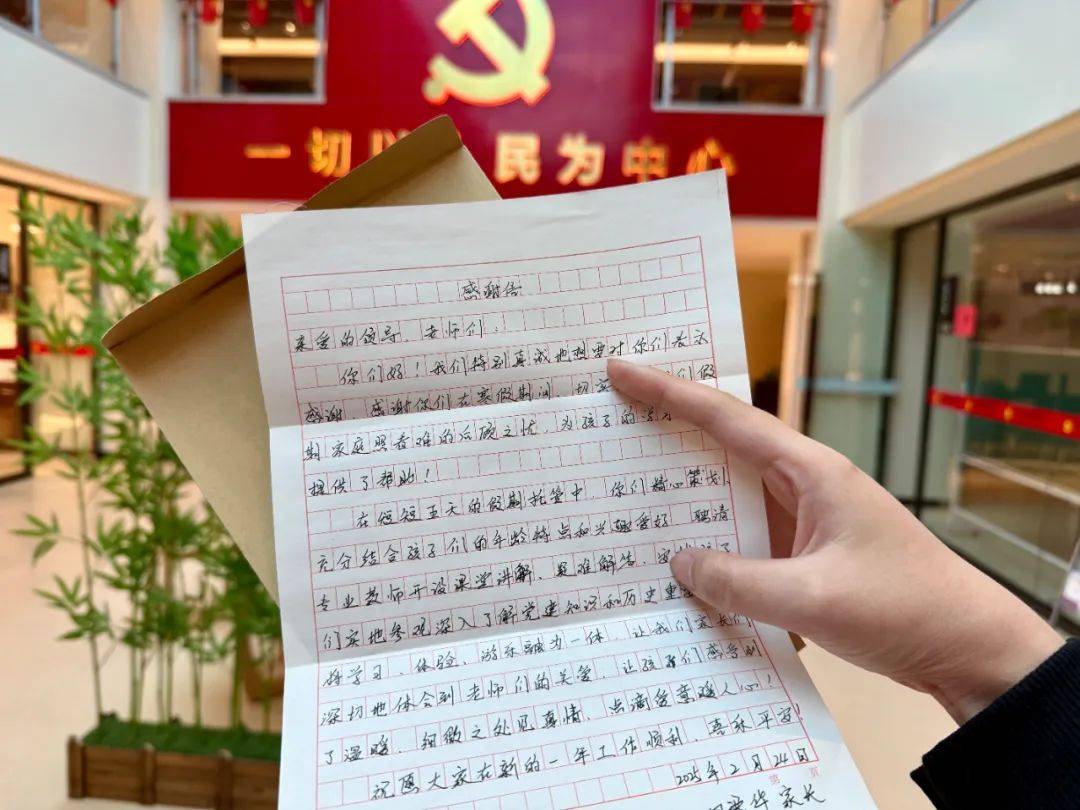 一切以 民为中心
感谢信
亲爱的领导、老师们：
你们好！我们特别真诚地想要对你们表示
感谢，感谢你们在寒假期间，切实 们假
期家庭照看难的后顾之忧，为孩子的学
提供了帮助！
在短短五天的假期托管中，你们精心策划，
充分结合孩子们的年龄特点和兴趣爱好，聘请
专业教师开设课堂讲解、疑难解答，
们实地参观深入了解党建知识和历史
将学习、体验、游乐融为一体，让我们家长们
深切地体会到老师们的关爱，让孩子们感受到
了温暖，细微之处见真情，点滴爱意暖人心！
祝愿大家在新的一年工作顺利，喜乐平安！
2025年2月24日
第 页
华 家长